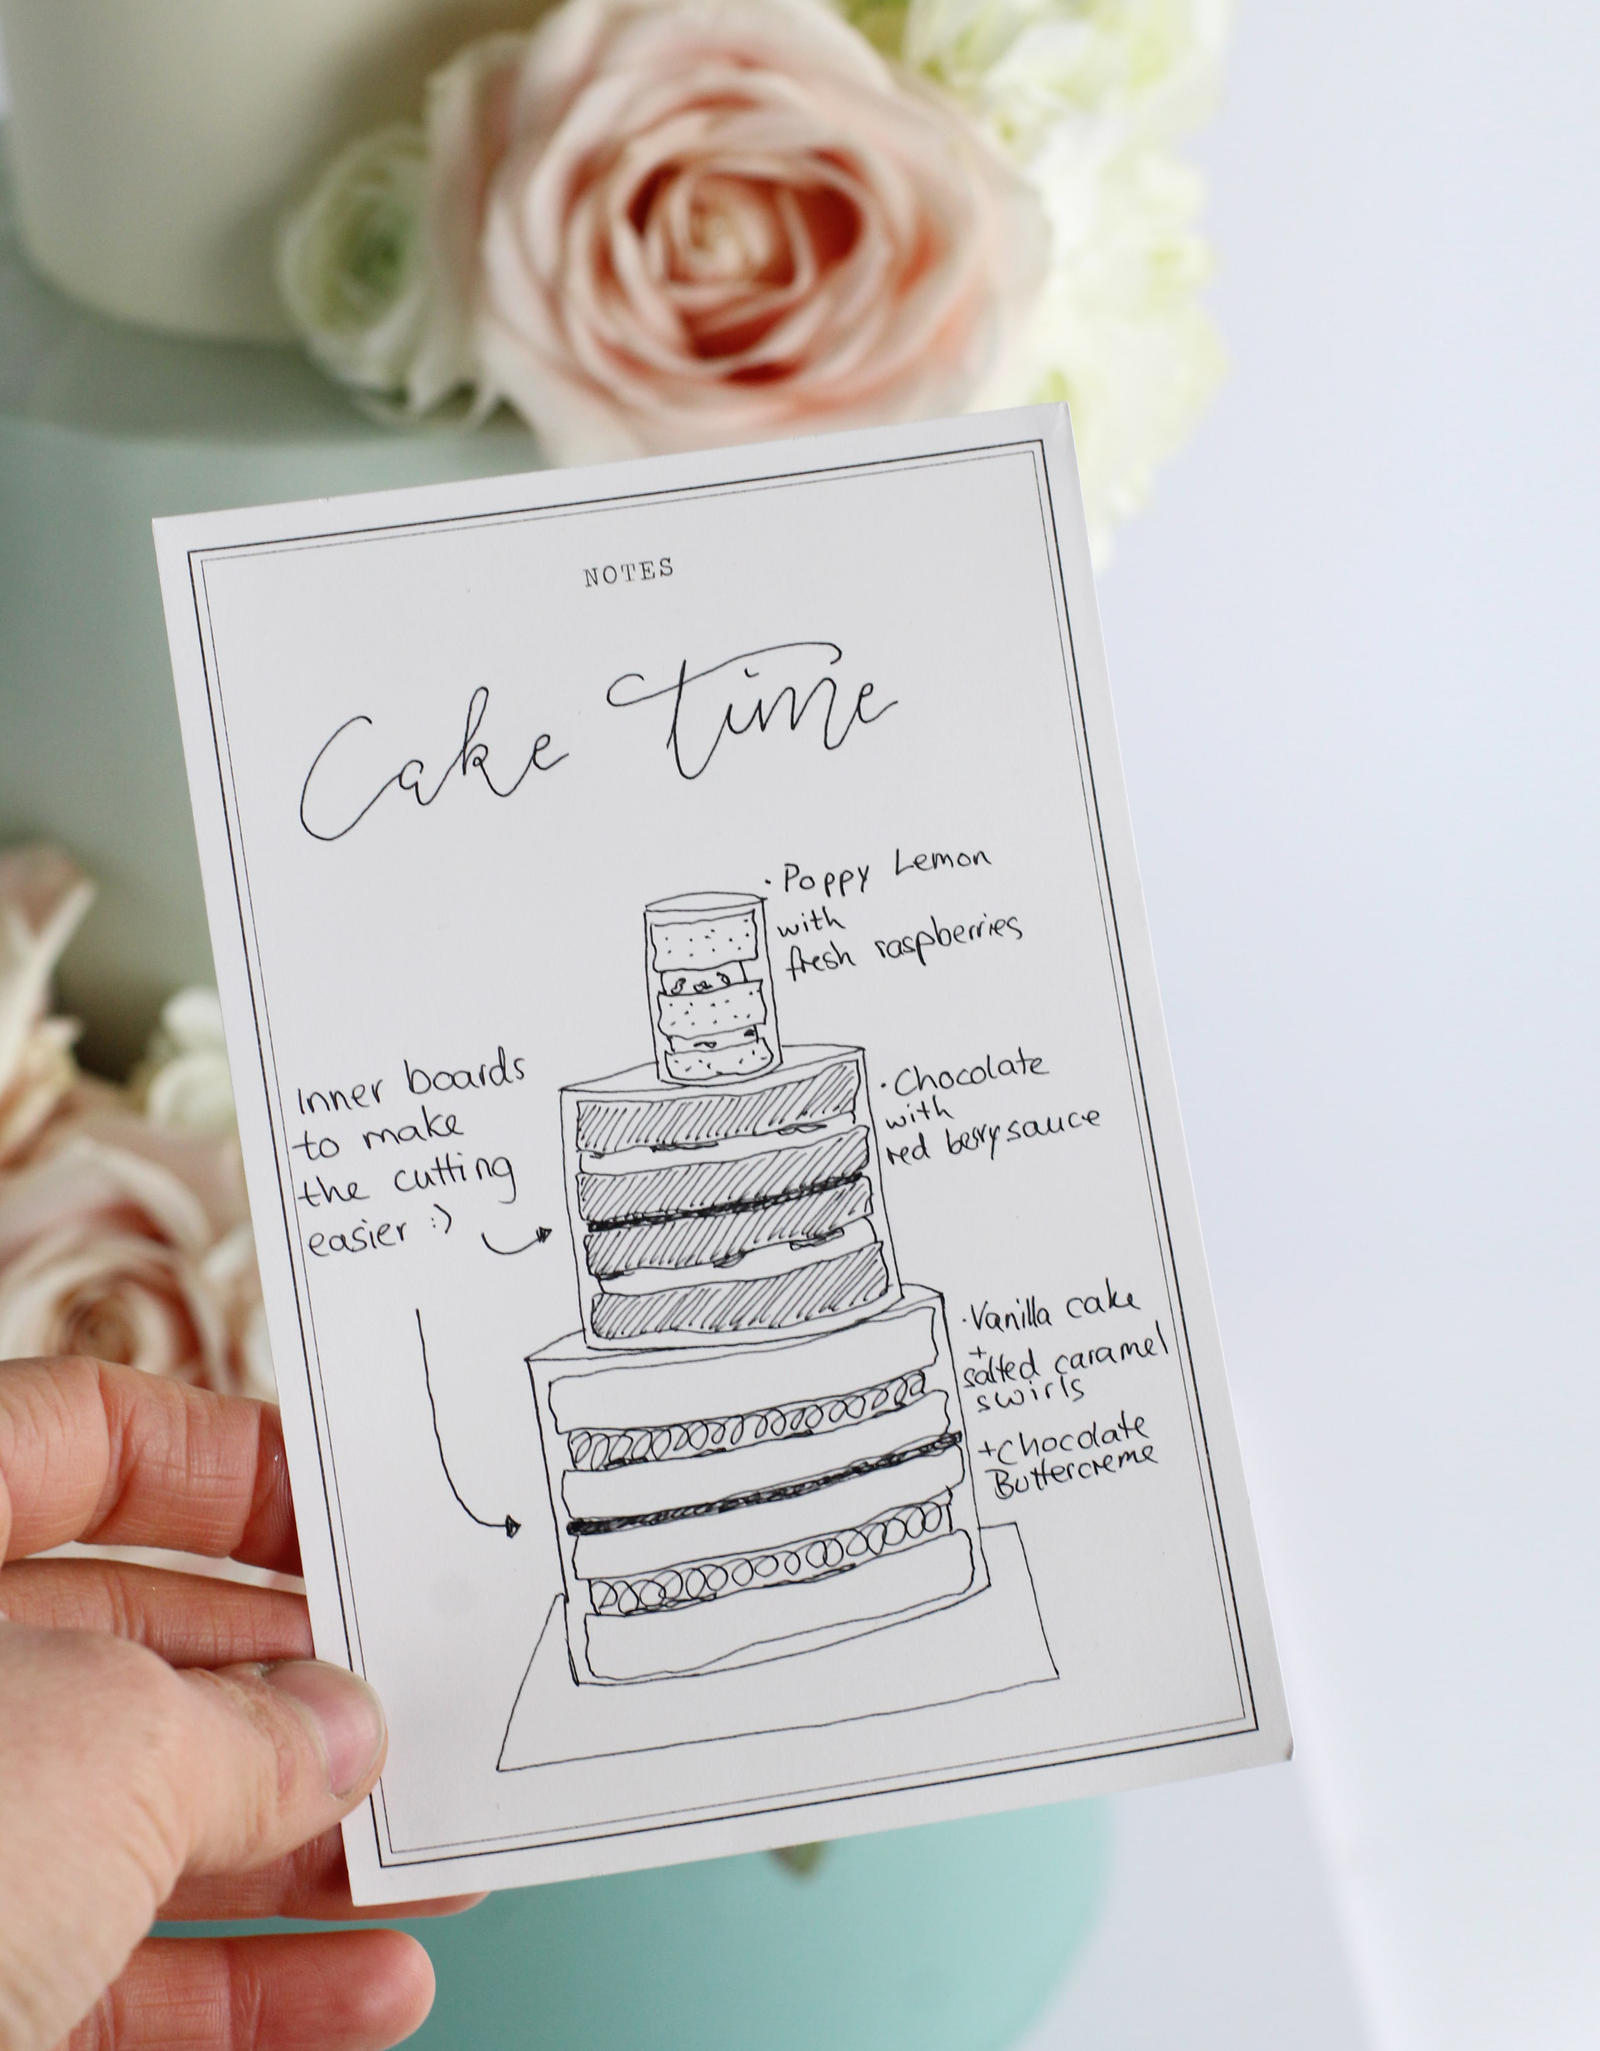 NOTES
Cake Time
· Poppy Lemon
with
fresh raspberries
Inner boards
to make
the cutting
easier :)
· Chocolate
with
red berry sauce
· Vanilla cake
+
salted caramel
swirls
+ Chocolate
Buttercreme